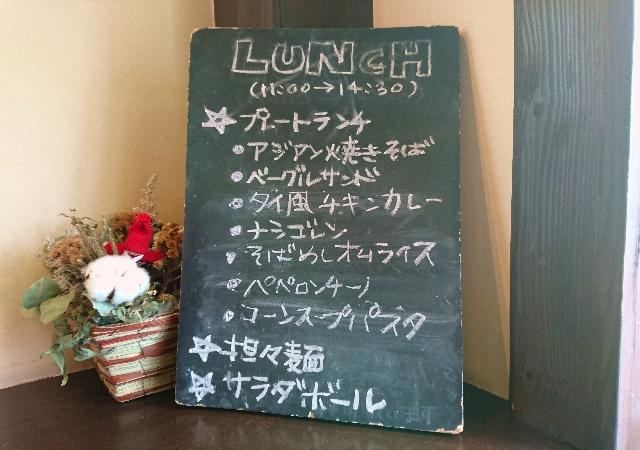 LUNCH
(11:00→14:30)
☆プレートランチ
・アジアン焼きそば
・ベーグルサンド
・タイ風チキンカレー
・ナシゴレン
・そばめしオムライス
・ペペロンチーノ
・コーンスープパスタ
☆担々麺
☆サラダボール